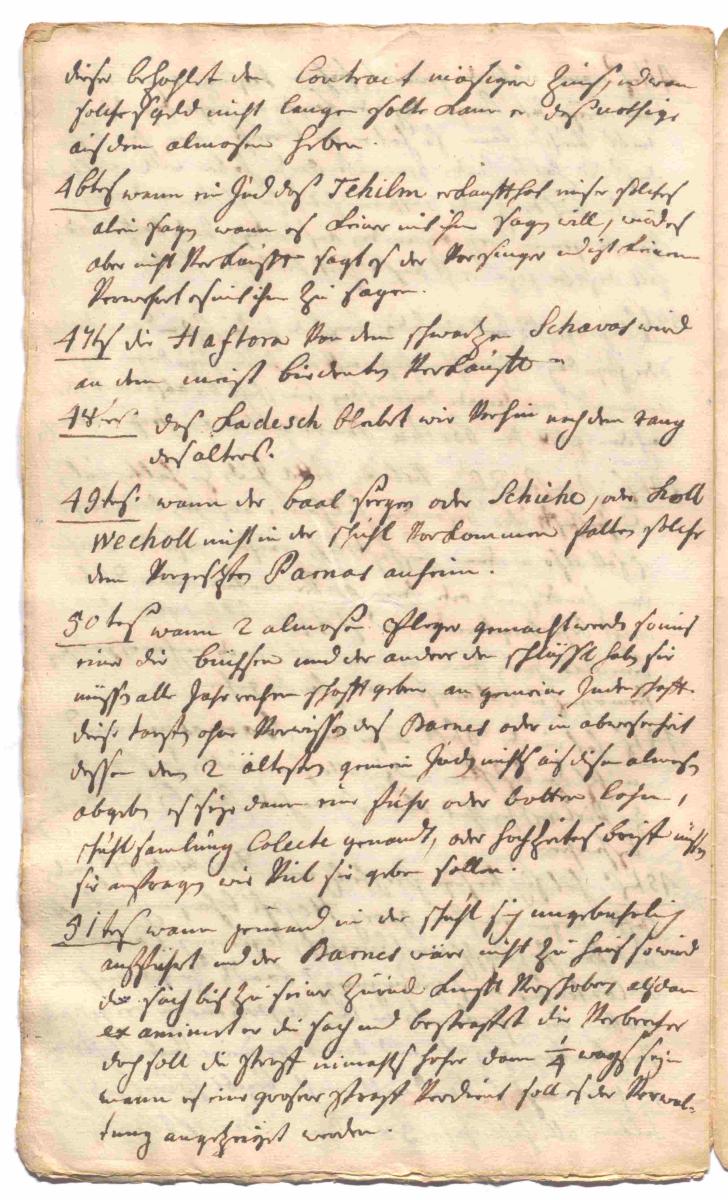 dieser bezahlet den Contract mäsigen Zinß, und wan
solches geld nicht langen solte kann er daß nöthige
auß dem almosen heben.
46tes wann ein Jud daß Tehilm erkaufft hat muß er solches
alein sagen wann es keiner mit ihm sagen will, wird es
aber nicht Verkaufft sagt es der Vorsinger und ist keinem
Verwehrt es mit ihm zu sagen.
47tes die Haftora Von dem schwartzen Schavas wird
an dem meist bietenden Verkaufft
48tes daß Kadesch bleibet wie Vorhin nach dem rang
des alters.
49tes. wann der baal sorgen oder Schiehe, oder Koll
Wecholl nicht in der schuhl Vorkommen fallen solche
dem Vorgesetzten Parnas anheim.
50tes wann 2 almosen Pfleger gemacht werden so muß
einer die büchsen und der andere den schlüssel haben sie
müssen alle Jahr rechenschafft geben an gemeine Judenschafft.
diese dorfen ohne Vorwissen des Barnes oder in abwesenheit
dessen den 2 ältesten gemein Juden nichts auß disem almosen
abgeben es seye dann eine fuhr oder botten lohn,
schuhl samlung Colecte genandt, oder hochzeites brief müssen
sie anfragen wie Viel sie geben sollen.
51tes wann jemand in der schuhl sich ungebührlich
aufführet und der Barnes wäre nicht zu hauß so wird
die sach biß zu seiner Zurück kunfft Verschoben alßdan
examiniret er die sach und bestraffet die Verbrecher
doch soll die straff niemahls höher dann 1/4 wachs seyn
wann es eine grosere straff Verdient soll es der Verwal-
tung angezeiget werden.